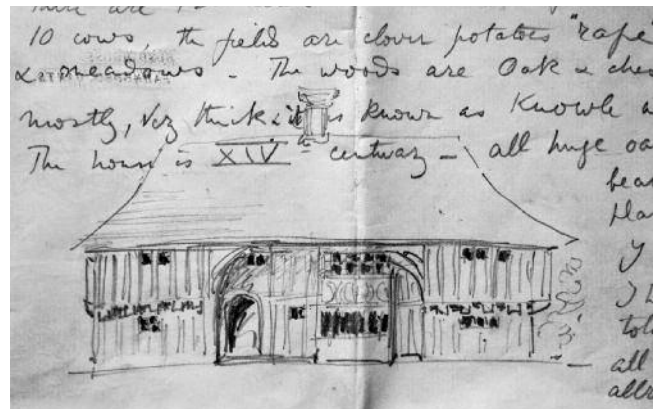 There are
10 cows, the fields are clover potatoes "rape"
& meadows - The woods are Oak & ches
mostly, very thick & it is known as Knowle
The house is XIV century - all huge oa
bea
tol
all